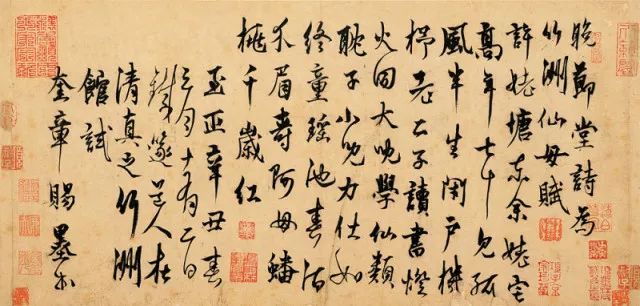 晚節堂詩為
竹洲仙母賦
許姥塘東余姥宅
高年七十見孤
風半生閉戶機
杼老二子讀書燈
火同大兒學仙類
聃子小兒力仕如
終童瑤池春酒
介眉壽阿母蟠
桃千歲紅
至正辛丑春
三月十有二日
鐵篴道人在
清真之竹洲
館試
奎章賜墨書